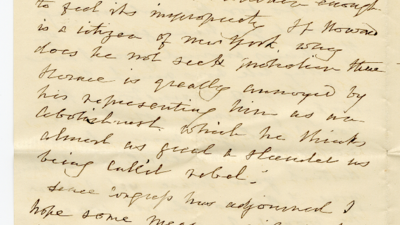 enough
to feel its impropriety If Howard
is a citizen of New York, why
does he not seek protection there
Horace is greatly annoyed by
his representing him as an
abolitionist which he thinks
almost as great a slander as
being called rebel.
since Congress has adjourned I
hope some